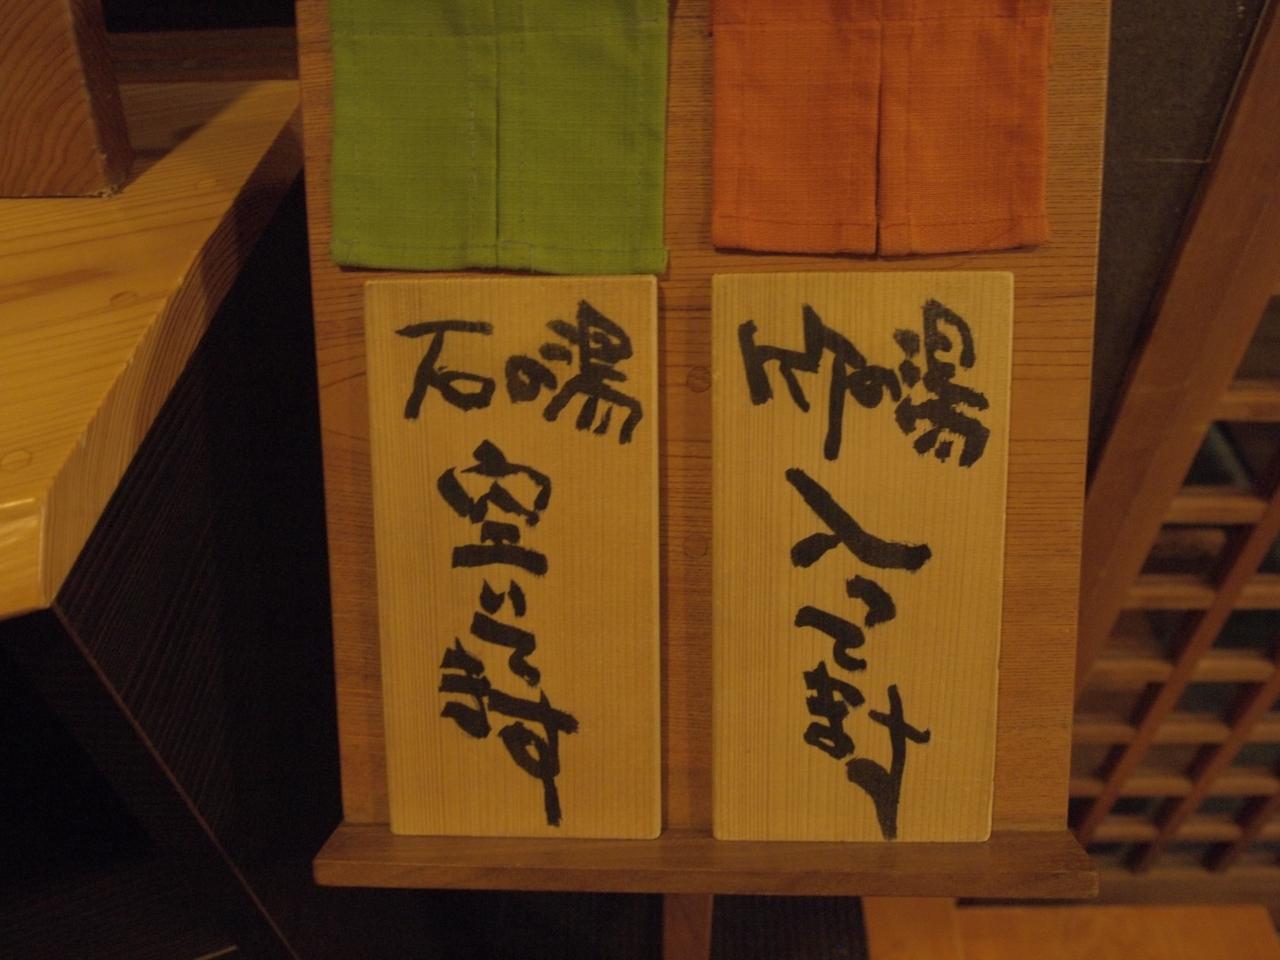 石の湯
空いてます
の湯
入ってます